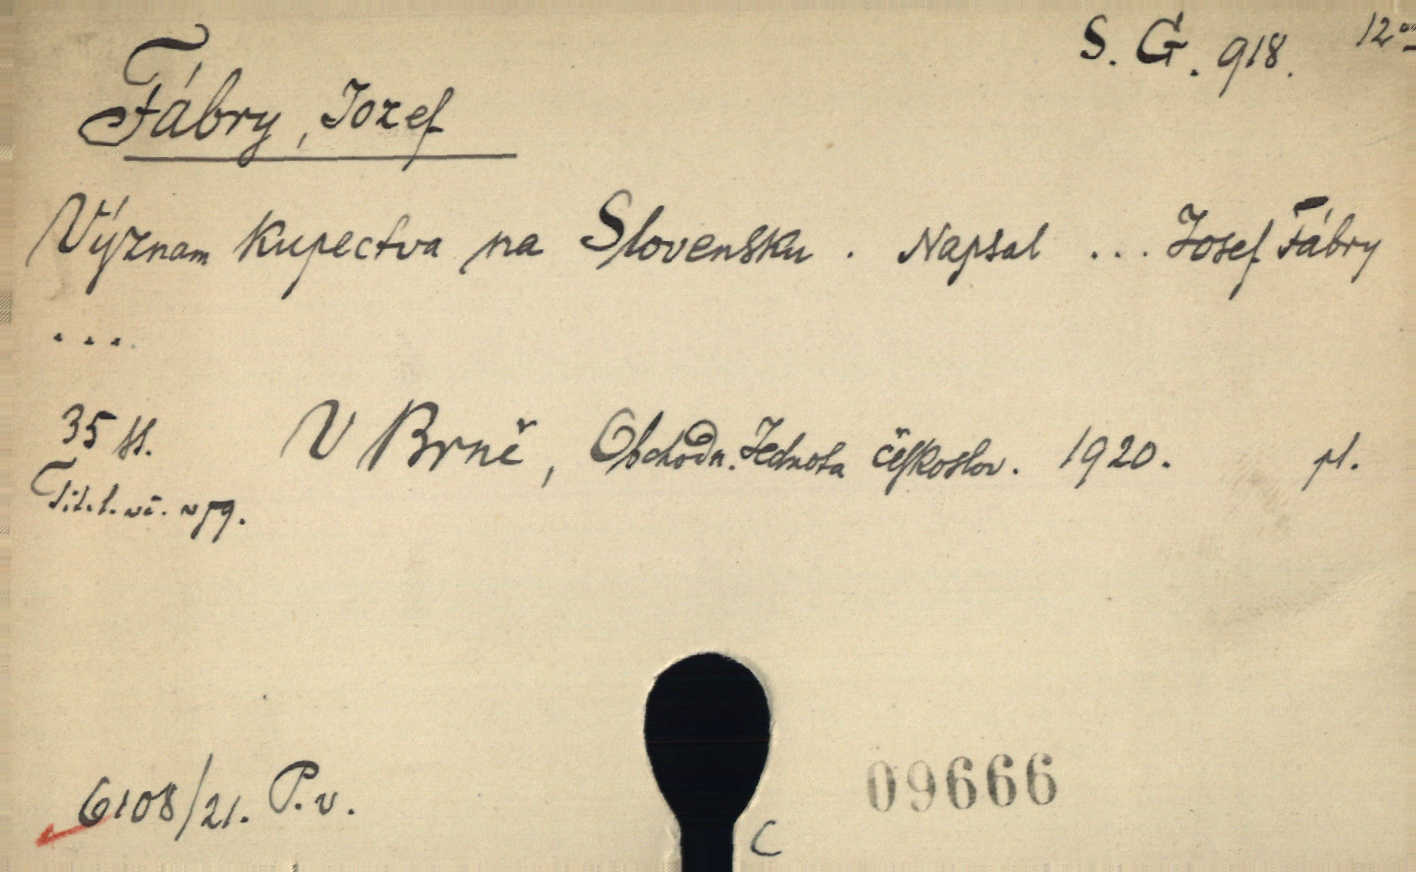 S. G. 918. 12°
Fábry, Jozef
Význam kupectva na Slovensku. Napsal ... Josef Fábry
...
35 ss. V Brně, Obchodn. Jednota českoslov. 1920. pl.
Tit. l.
6108/21. P. v.
09666
C